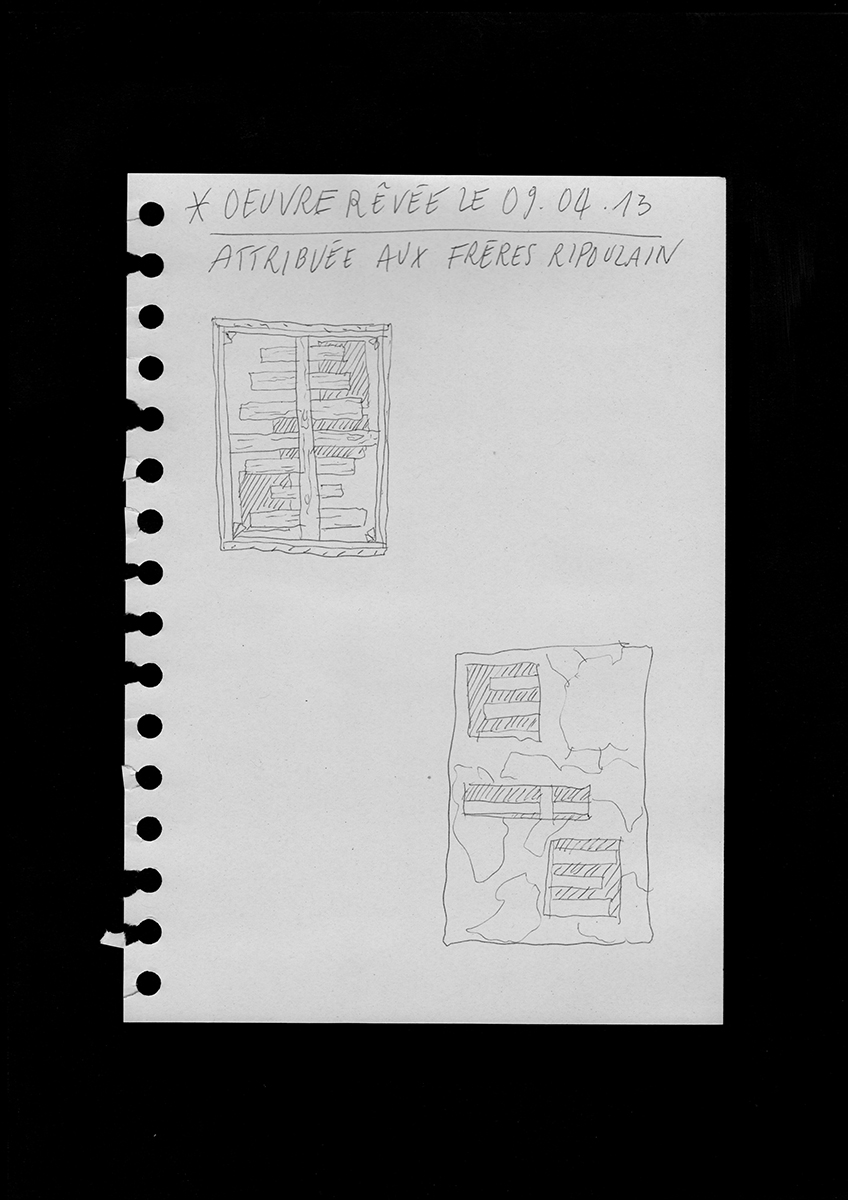 * OEUVRE RÊVÉE LE 09.04.13
ATTRIBUÉE AUX FRÈRES RIPOULAIN